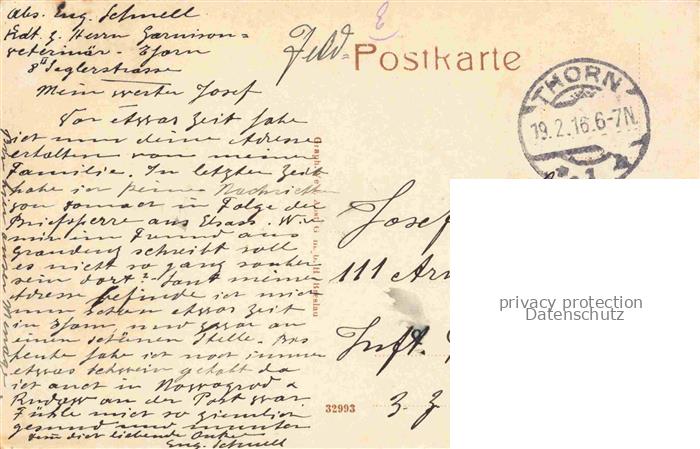 Abs. Eug. Schnell
Kdt. z. Herrn Garnison=
veterinär - Thorn
8II Seglerstrasse
Mein werter Josef
Vor etwas Zeit habe
ich nun deine Adresse
erhalten von meiner
Familie. In letzter Zeit
habe ich keine Nachricht
von in Folge der
Briefsperre aus Elsass. Wie
mir ein Freund aus
Graudenz schreibt soll
es nicht so ganz sauber
sein dort? Laut meiner
Adresse befinde ich mich
nun schon etwas Zeit
in Thorn, und zwar an
einer schönen Stelle. Bis
heute habe ich noch immer
etwas Schwein gehabt da
ich auch in Nowogrod &
Rudzew an der Post war.
Fühle mich so ziemlich
gesund und munter
dein dich liebender Onkel
Eug. Schnell
Feld=
Postkarte
E
THORN
19.2.16.6-7N.
1
Graph. Verl.-Anst. G. m. b. H. Breslau
Josef
111 Ar
Inft.
3. Z
32993
privacy protection
Datenschutz